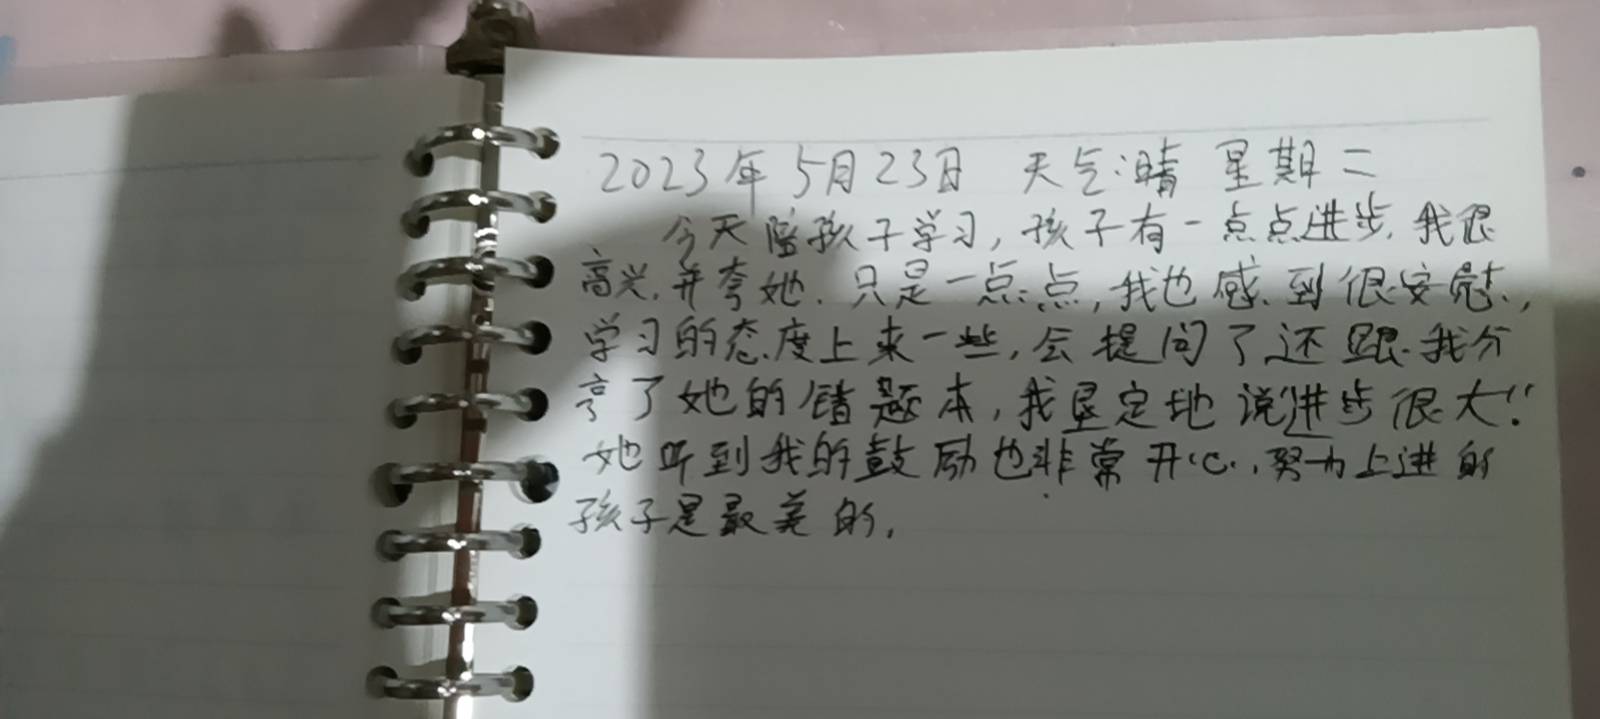 2023年5月23日 天气:晴 星期二
今天陪孩子学习,孩子有一点点进步,我很
高兴,并夸她.只是一点点,我也感到很安慰,
学习的态度上来一些,会提问了还跟我分
享了她的错题本,我坚定地说进步很大!
她听到我的鼓励也非常开心.,努力上进的
孩子是最美的,